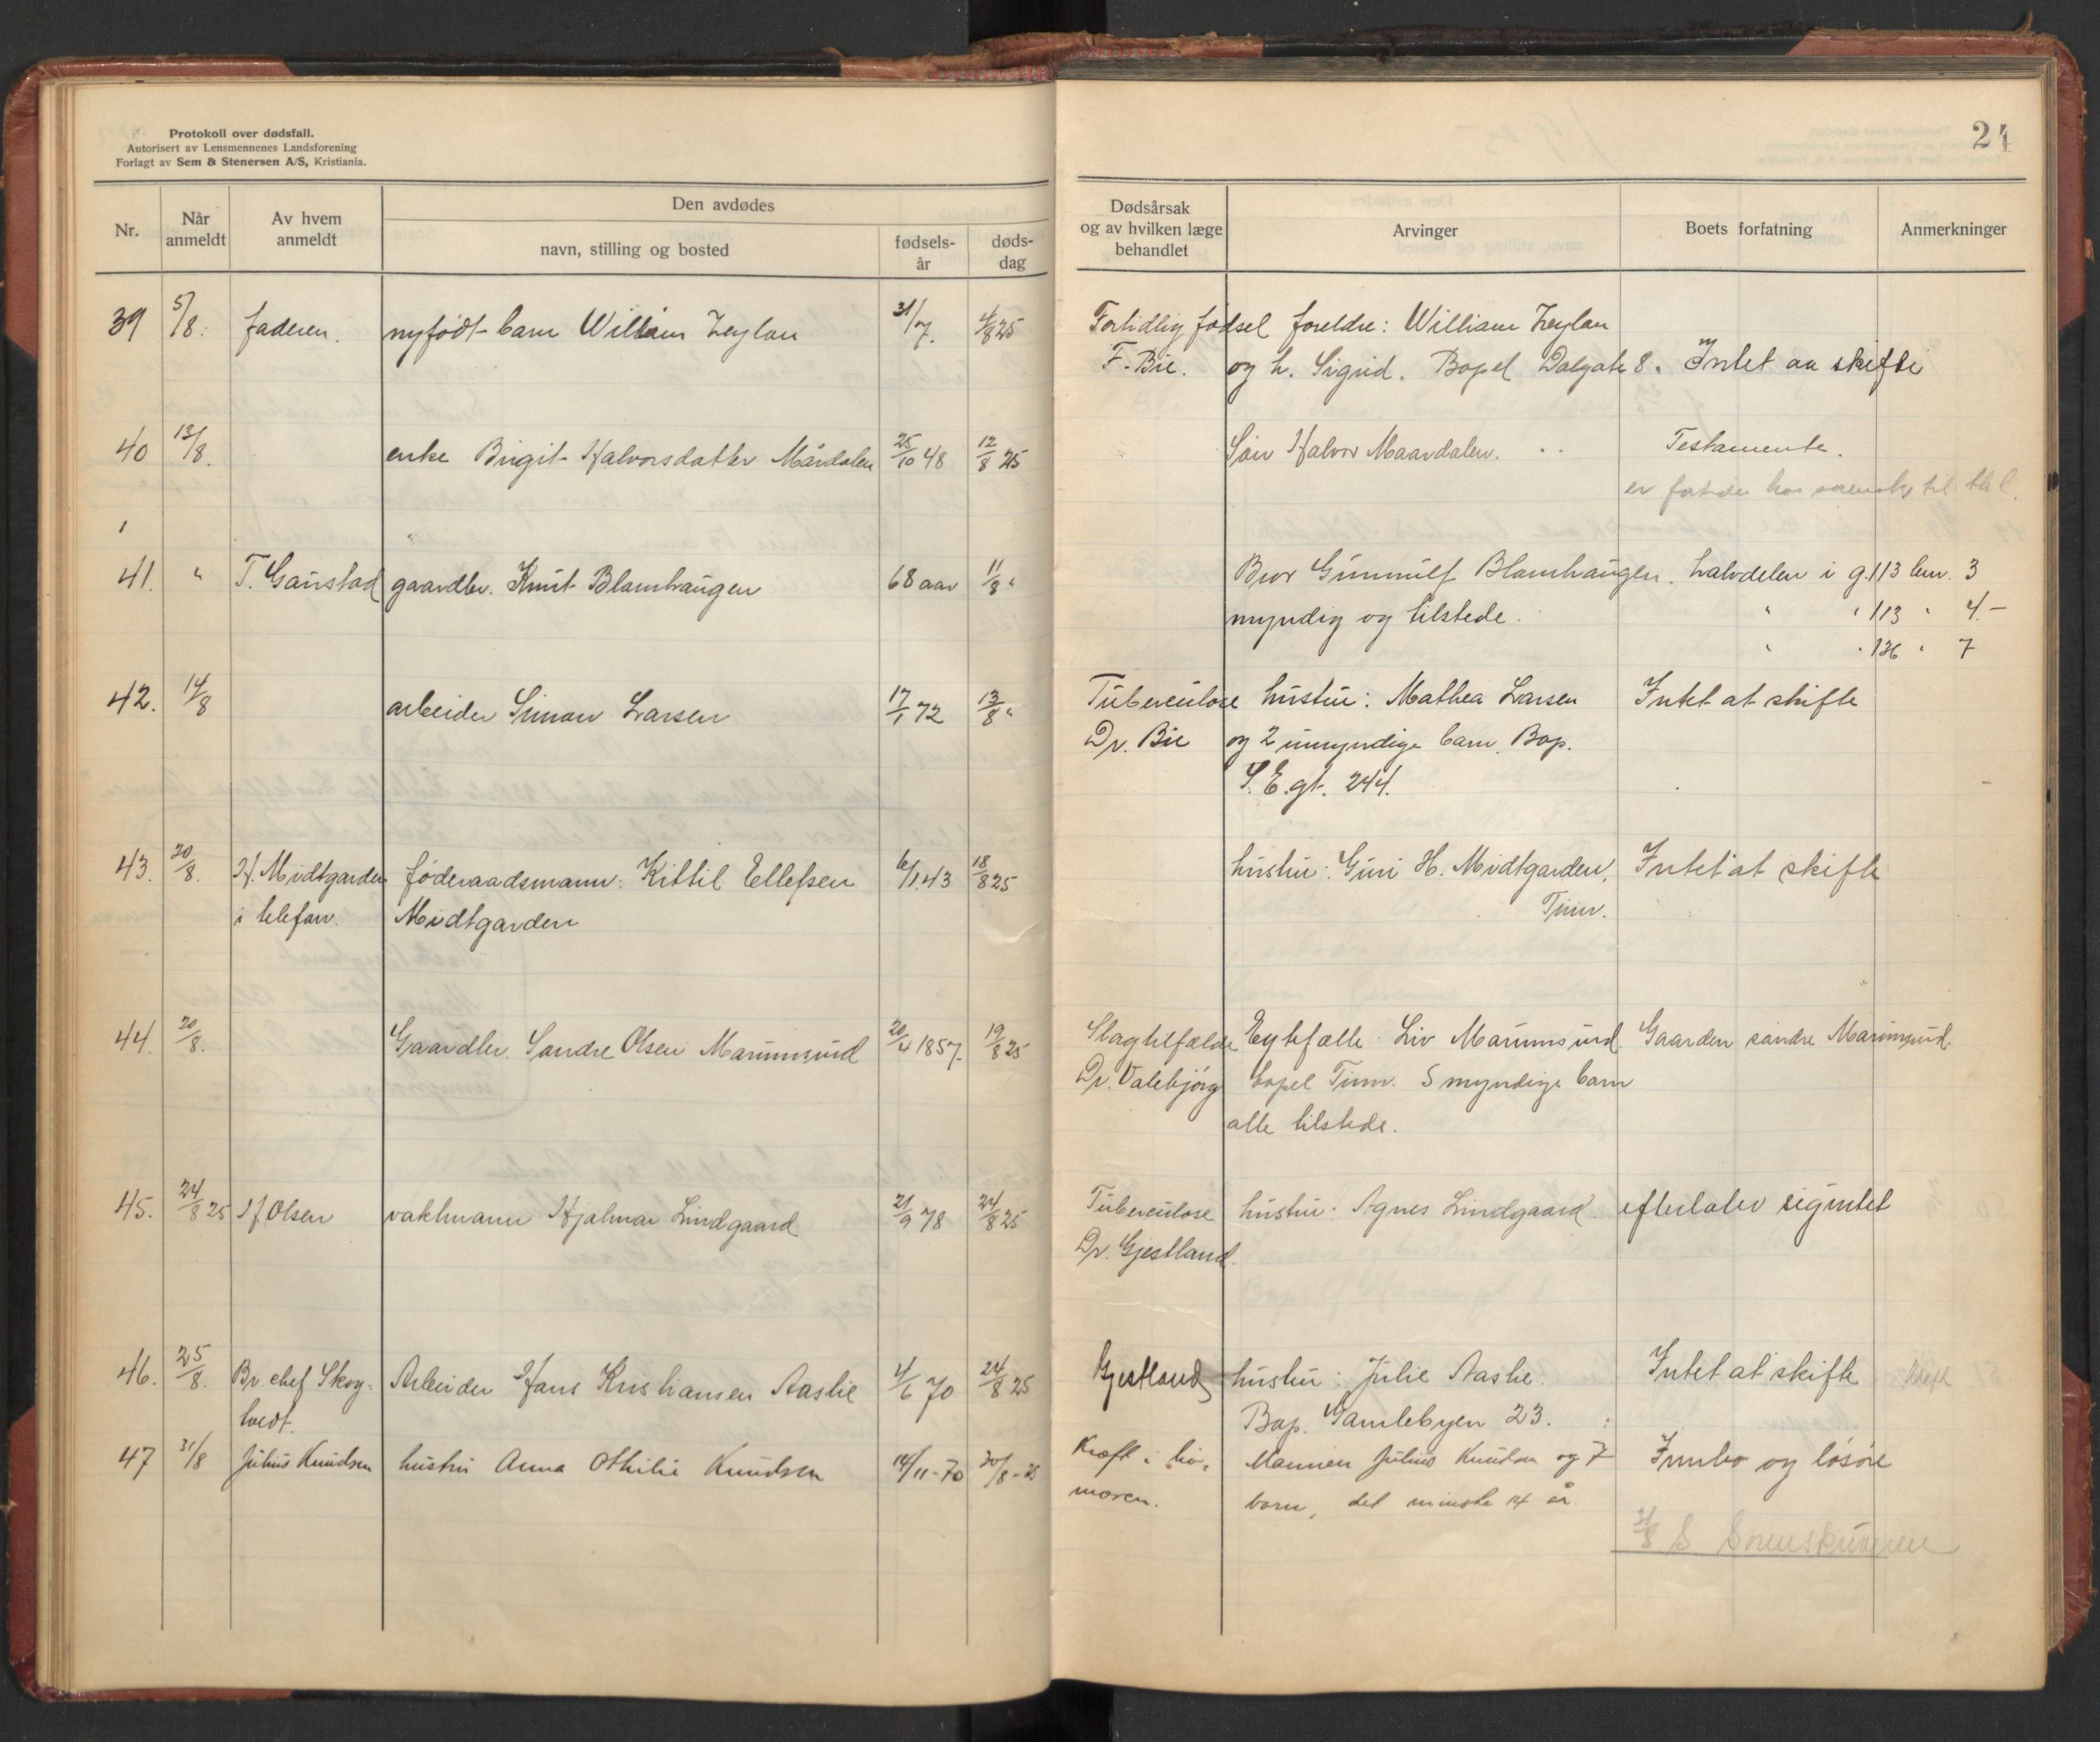 Protokoll over dødsfall.
Autorisert av Lensmennenes Landsforening
Forlagt av Sem & Stenersen A/S, Kristiania.
24
Nr. Når anmeldt Av hvem anmeldt Den avdødes navn, stilling og bosted fødsels-år døds-dag Dødsårsak og av hvilken læge behandlet Arvinger Boets forfatning Anmerkninger
39 5/8. faderen. nyfødt barn William Zeylan 31/7. 4/8 25 Fortidlig fødsel foreldre: William Zeylan
F. Bie. og h. Sigrid. Bopel Dalgate 8. Intet aa skifte
40 13/8. enke Birgit Halvorsdatter Mårdalen 25/10 48 12/8 25 Søn Halvor Maardalen. Testamente.
er til
41. " T. Gaustad gaardbr. Knut Blamhaugen 68 aar 11/8 " Bror Gunnulf Blamhaugen. halvdelen i g. 113 brn. 3
myndig og tilstede. " " 113 " 4.-
" " 136 " 7
42. 14/8 arbeider Simon Larsen 17/1 72 13/8 " Tuberculose hustru: Mathea Larsen Intet at skifte
Dr. Bie og 2 umyndige barn. Bop.
S. E. gt. 244.
43. 20/8. H. Midtgarden føderaadsmann: Kittil Ellefsen 6/1 43 18/8 25 hustru: Guri H. Midtgarden, Intet at skifte
i telefon. Midtgarden Tinn.
44. 20/8. Gaardbr. Sondre Olsen Marumsrud 20/4 1857. 19/8 25 Slagtilfælde Egtefælle Liv Marumsrud. Gaarden søndre Marumsrud.
Dr. Valebjørg bopel Tinn. 5 myndige barn
alle tilstede.
45. 24/8 25 H. Olsen vaktmann Hjalmar Lindgaard 21/9 78 24/8 25 Tuberculose hustru: Agnes Lindgaard. efterlater sig intet
Dr. Gjestland.
46. 25/8. Br. chef Skog- Arbeider Hans Kristiansen Aaslie 4/6 70 24/8 25 Gjestland hustru: Julie Aaslie. Intet at skifte
tvedt. Bop. Gamlebyen 23.
47 31/8 Julius Knudsen hustru Anna Othilie Knudsen 14/11-70 30/8-25 Kræft i liv- Mannen Julius Knudsen og 7 Innbo og løsøre
moren. barn, det minste 14 år.
31/8 S Sorenskriveren